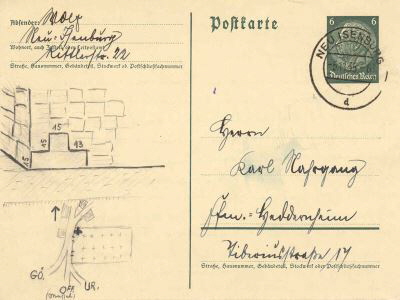 Absender: Wolf
Neu-Isenburg
Wohnort, auch Zustell- oder Leitpostamt
Rittlerstr. 22
Straße, Hausnummer, Gebäudeteil, Stockwerk od. Postschließfachnummer
15
15
15
13
GÖ.
OFF.
UR.
Postkarte
6
6
Deutsches Reich
NEU ISENBURG
d
Herrn
Karl Nahrgang
Ffm.-Heddernheim
Tiberiusstraße 17
Straße, Hausnummer, Gebäudeteil, Stockwerk oder Postschließfachnummer